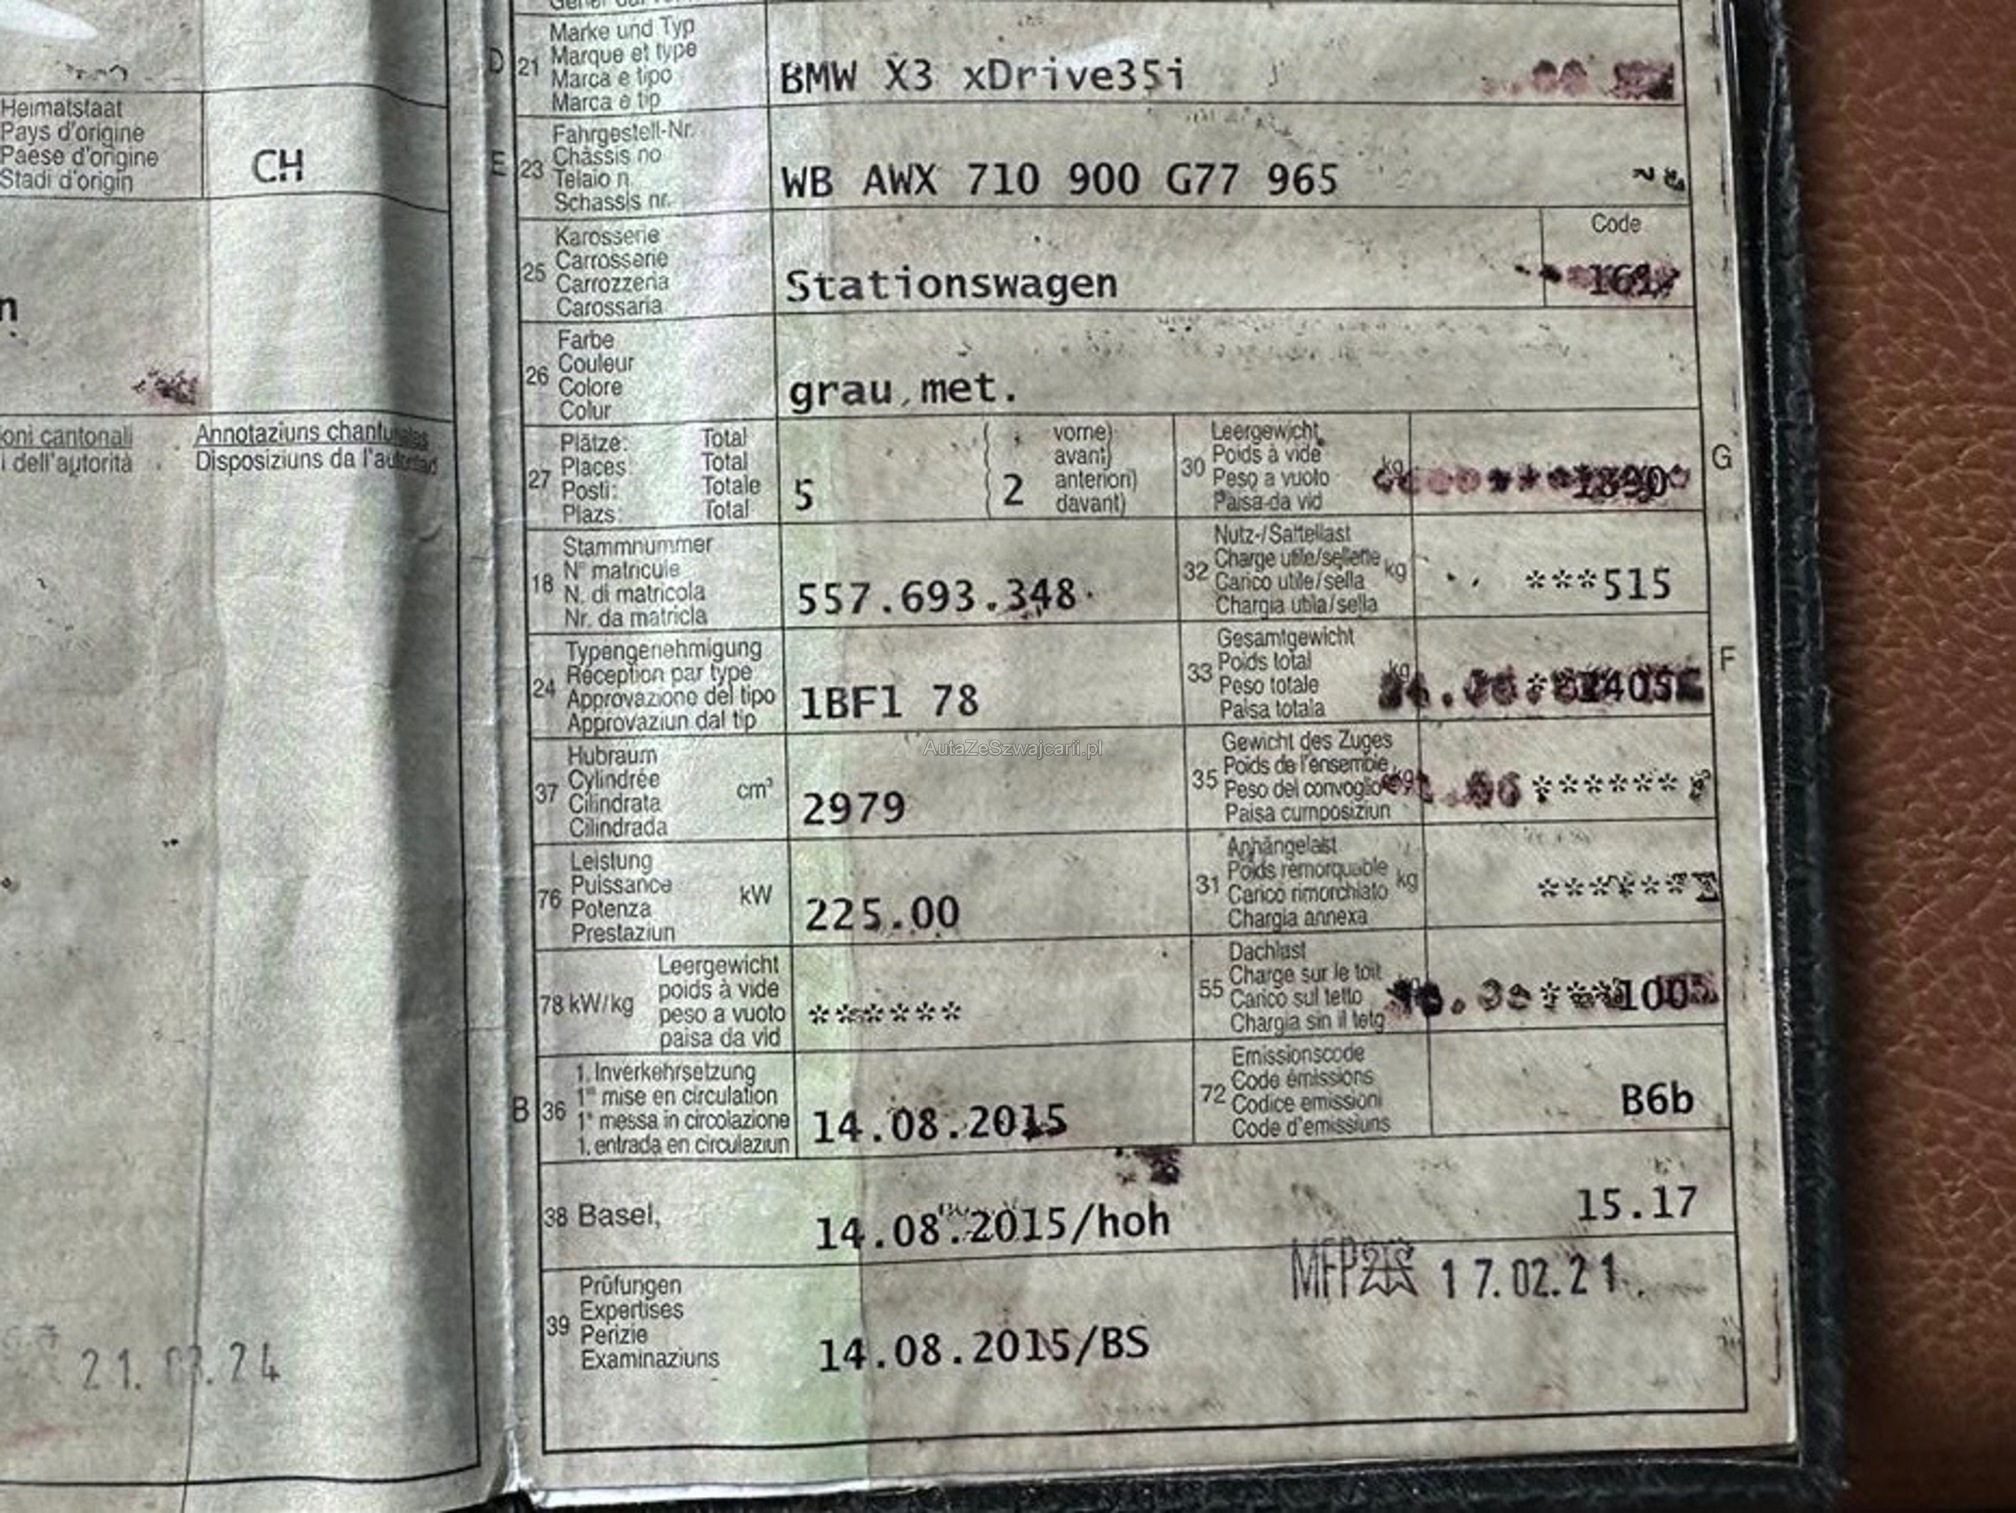 Heimatstaat
Pays d'origine
Paese d'origine
Stadi d'origin
CH
n
oni cantonali
i dell'autorità
Annotaziuns chantunalas
Disposiziuns da l'autoritad
21.03.24
D 21 Marke und Typ
Marque et type
Marca e tipo
Marca e tip
BMW X3 xDrive35i
E 23 Fahrgestell-Nr.
Châssis no
Telaio n.
Schassis nr.
WB AWX 710 900 G77 965
25 Karosserie
Carrosserie
Carrozzeria
Carossaria
Stationswagen
Code
161
26 Farbe
Couleur
Colore
Colur
grau met.
27 Plätze: Total
Places: Total
Posti: Totale
Plazs: Total
5
( vorne)
avant)
anteriori)
( 2 davant)
30 Leergewicht
Poids à vide
Peso a vuoto
Paisa da vid
kg
1890
G
18 Stammnummer
N° matricule
N. di matricola
Nr. da matricla
557.693.348
32 Nutz-/Sattellast
Charge utile/sellette
Carico utile/sella
Chargia utila/sella
kg
***515
24 Typengenehmigung
Réception par type
Approvazione del tipo
Approvaziun dal tip
1BF1 78
33 Gesamtgewicht
Poids total
Peso totale
Paisa totala
kg
2405
F
AutaZeSzwajcarii.pl
37 Hubraum
Cylindrée
Cilindrata
Cilindrada
cm³
2979
35 Gewicht des Zuges
Poids de l'ensemble
Peso del convoglio
Paisa cumposiziun
kg
*******
76 Leistung
Puissance
Potenza
Prestaziun
kW
225.00
31 Anhängelast
Poids remorquable
Carico rimorchiato
Chargia annexa
kg
*******
78 kW/kg
Leergewicht
poids à vide
peso a vuoto
paisa da vid
******
55 Dachlast
Charge sur le toit
Carico sul tetto
Chargia sin il tetg
kg
100
B 36 1. Inverkehrsetzung
1re mise en circulation
1a messa in circolazione
1. entrada en circulaziun
14.08.2015
72 Emissionscode
Code émissions
Codice emissioni
Code d'emissiuns
B6b
38 Basel,
14.08.2015/hoh
15.17
MFP 17.02.21
39 Prüfungen
Expertises
Perizie
Examinaziuns
14.08.2015/BS